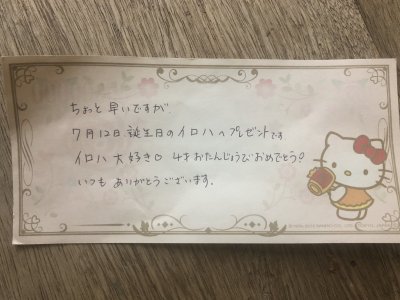 ちょっと早いですが
7月12日誕生日のイロハへプレゼントです
イロハ大好き♡ 4才おたんじょうびおめでとう♡
いつもありがとうございます。